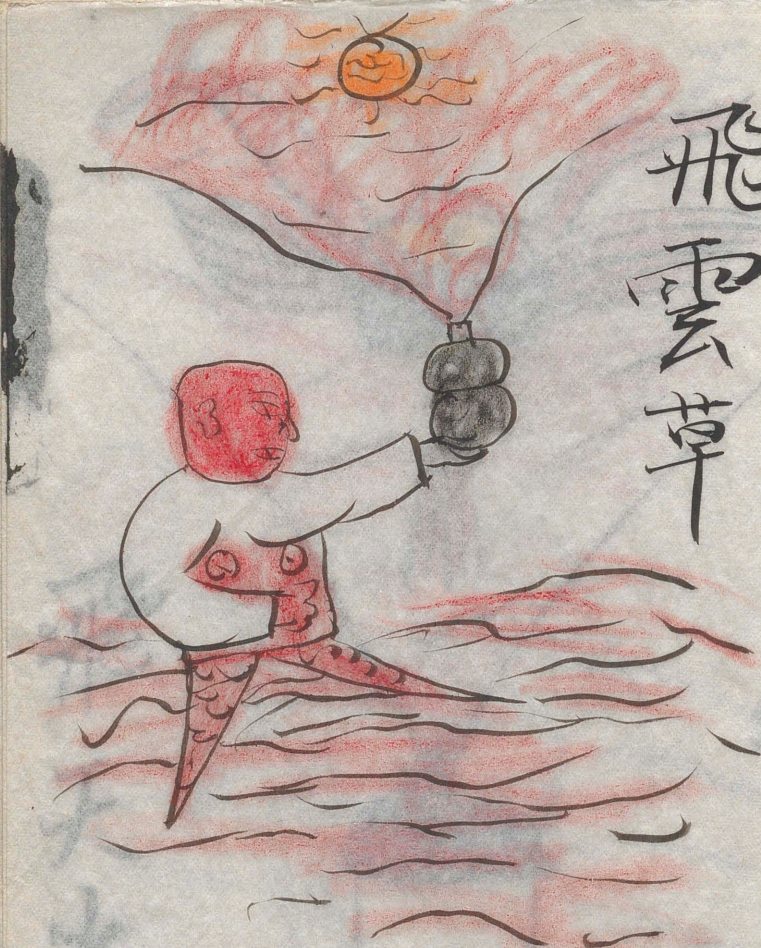 飛雲草